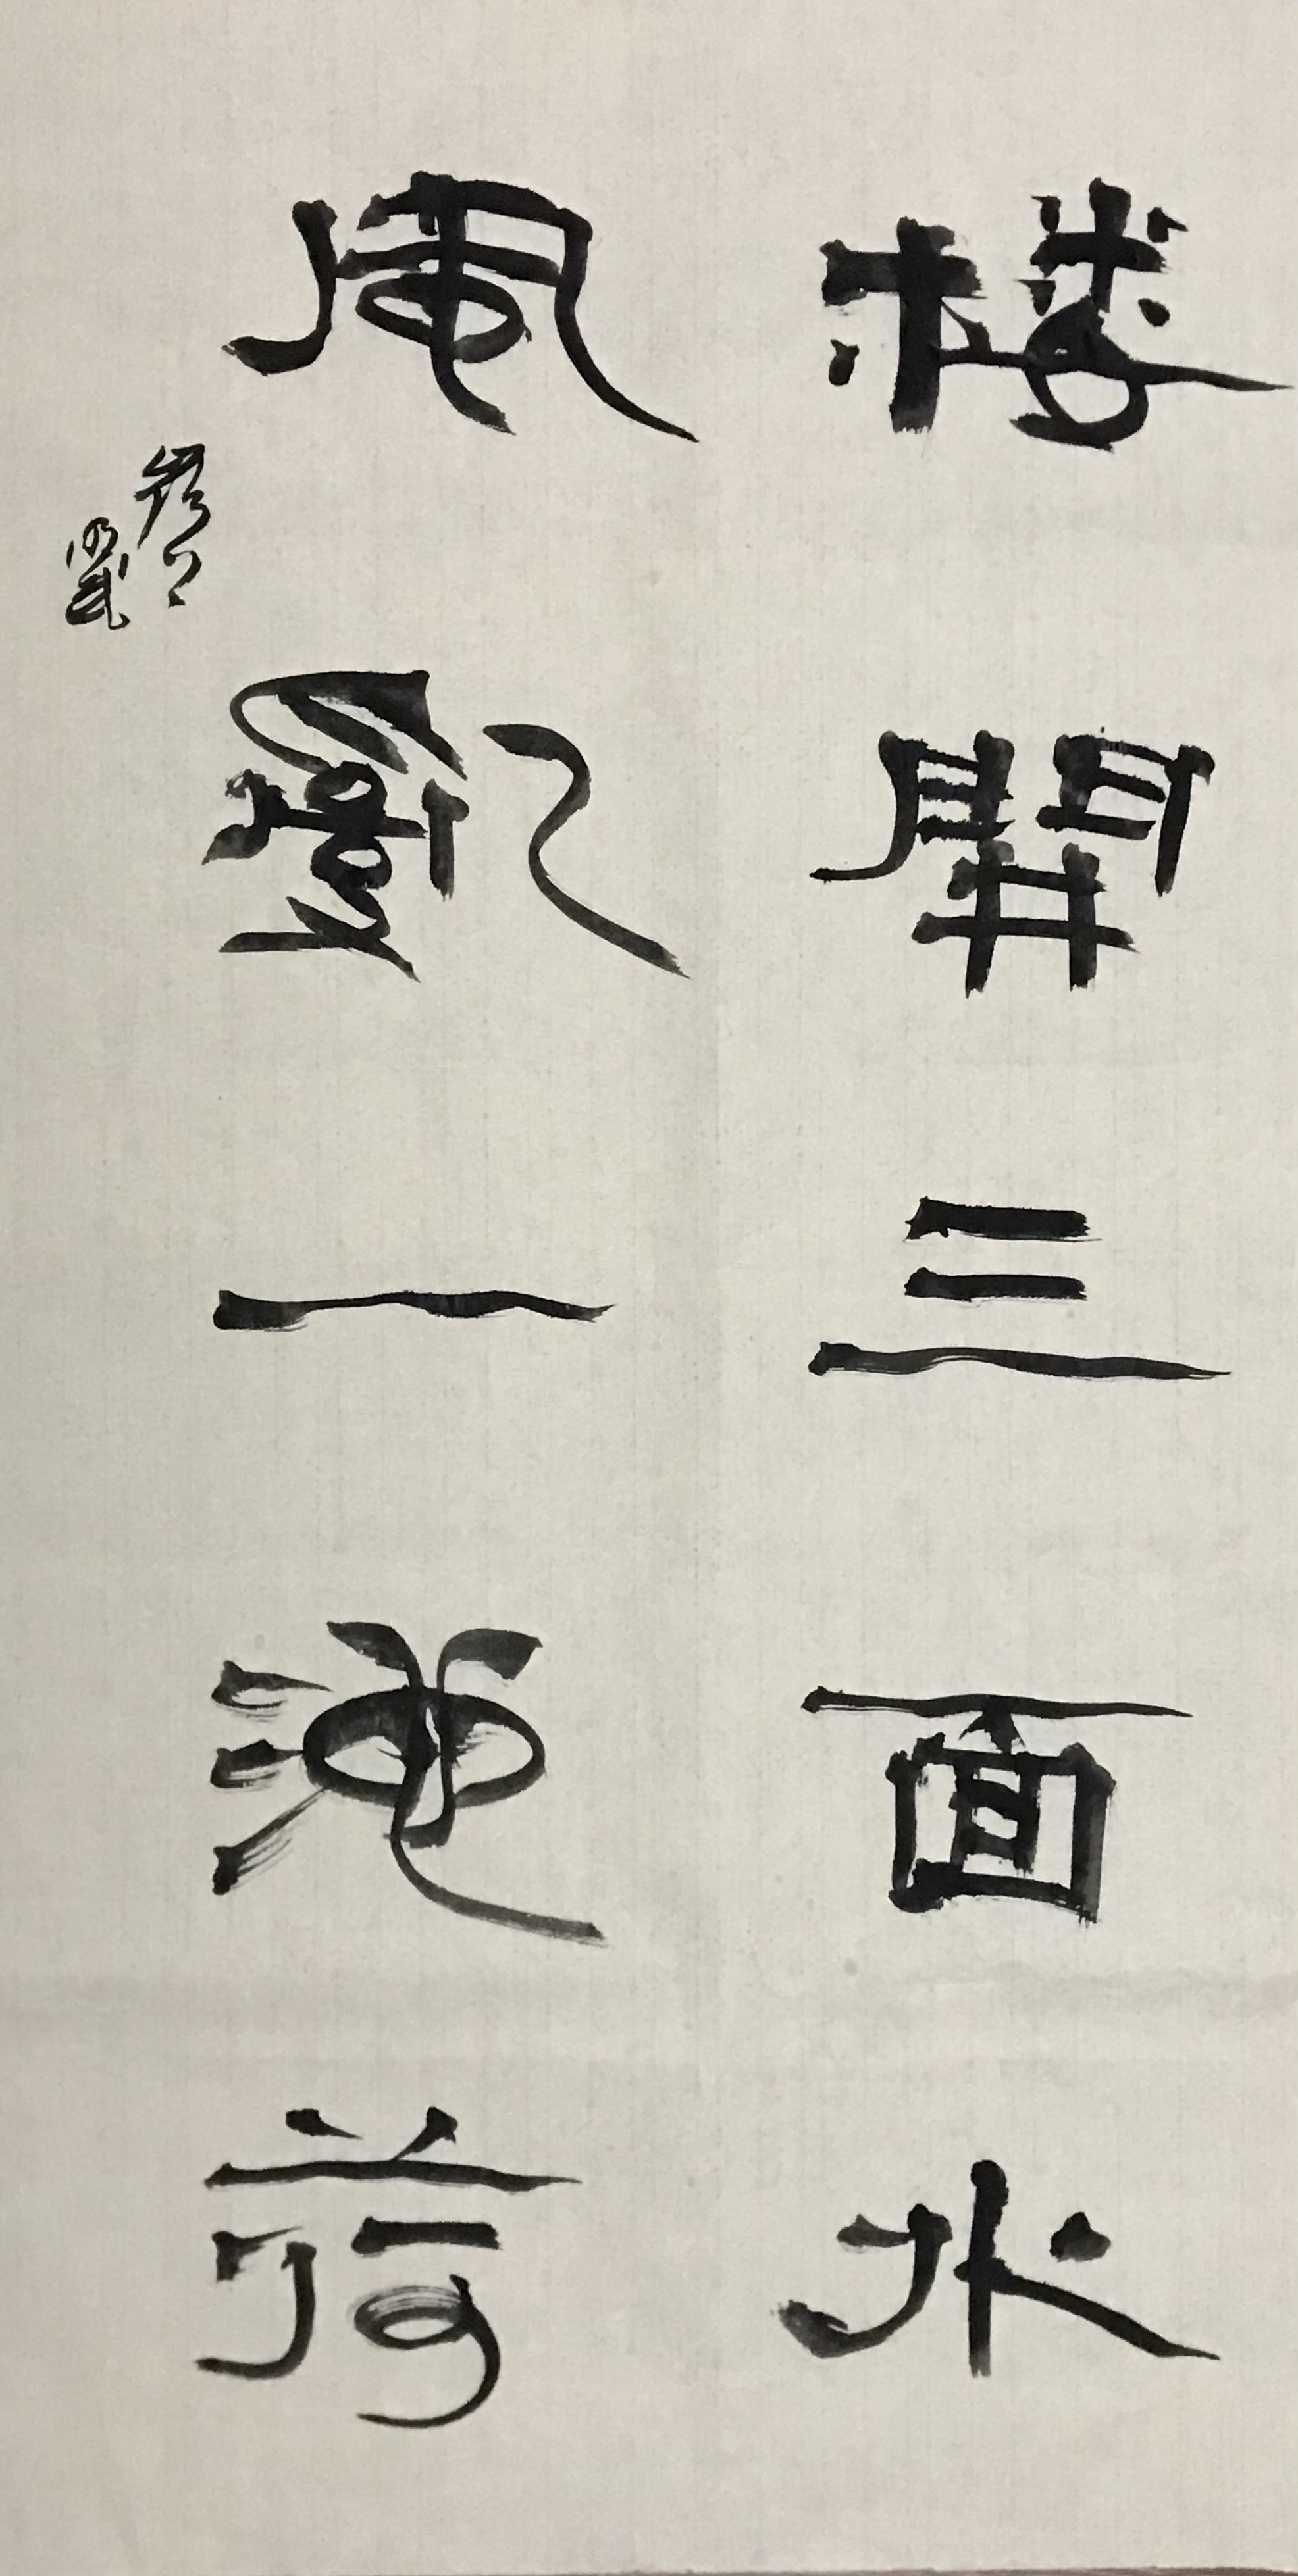 楼開三面水
風亂一池荷